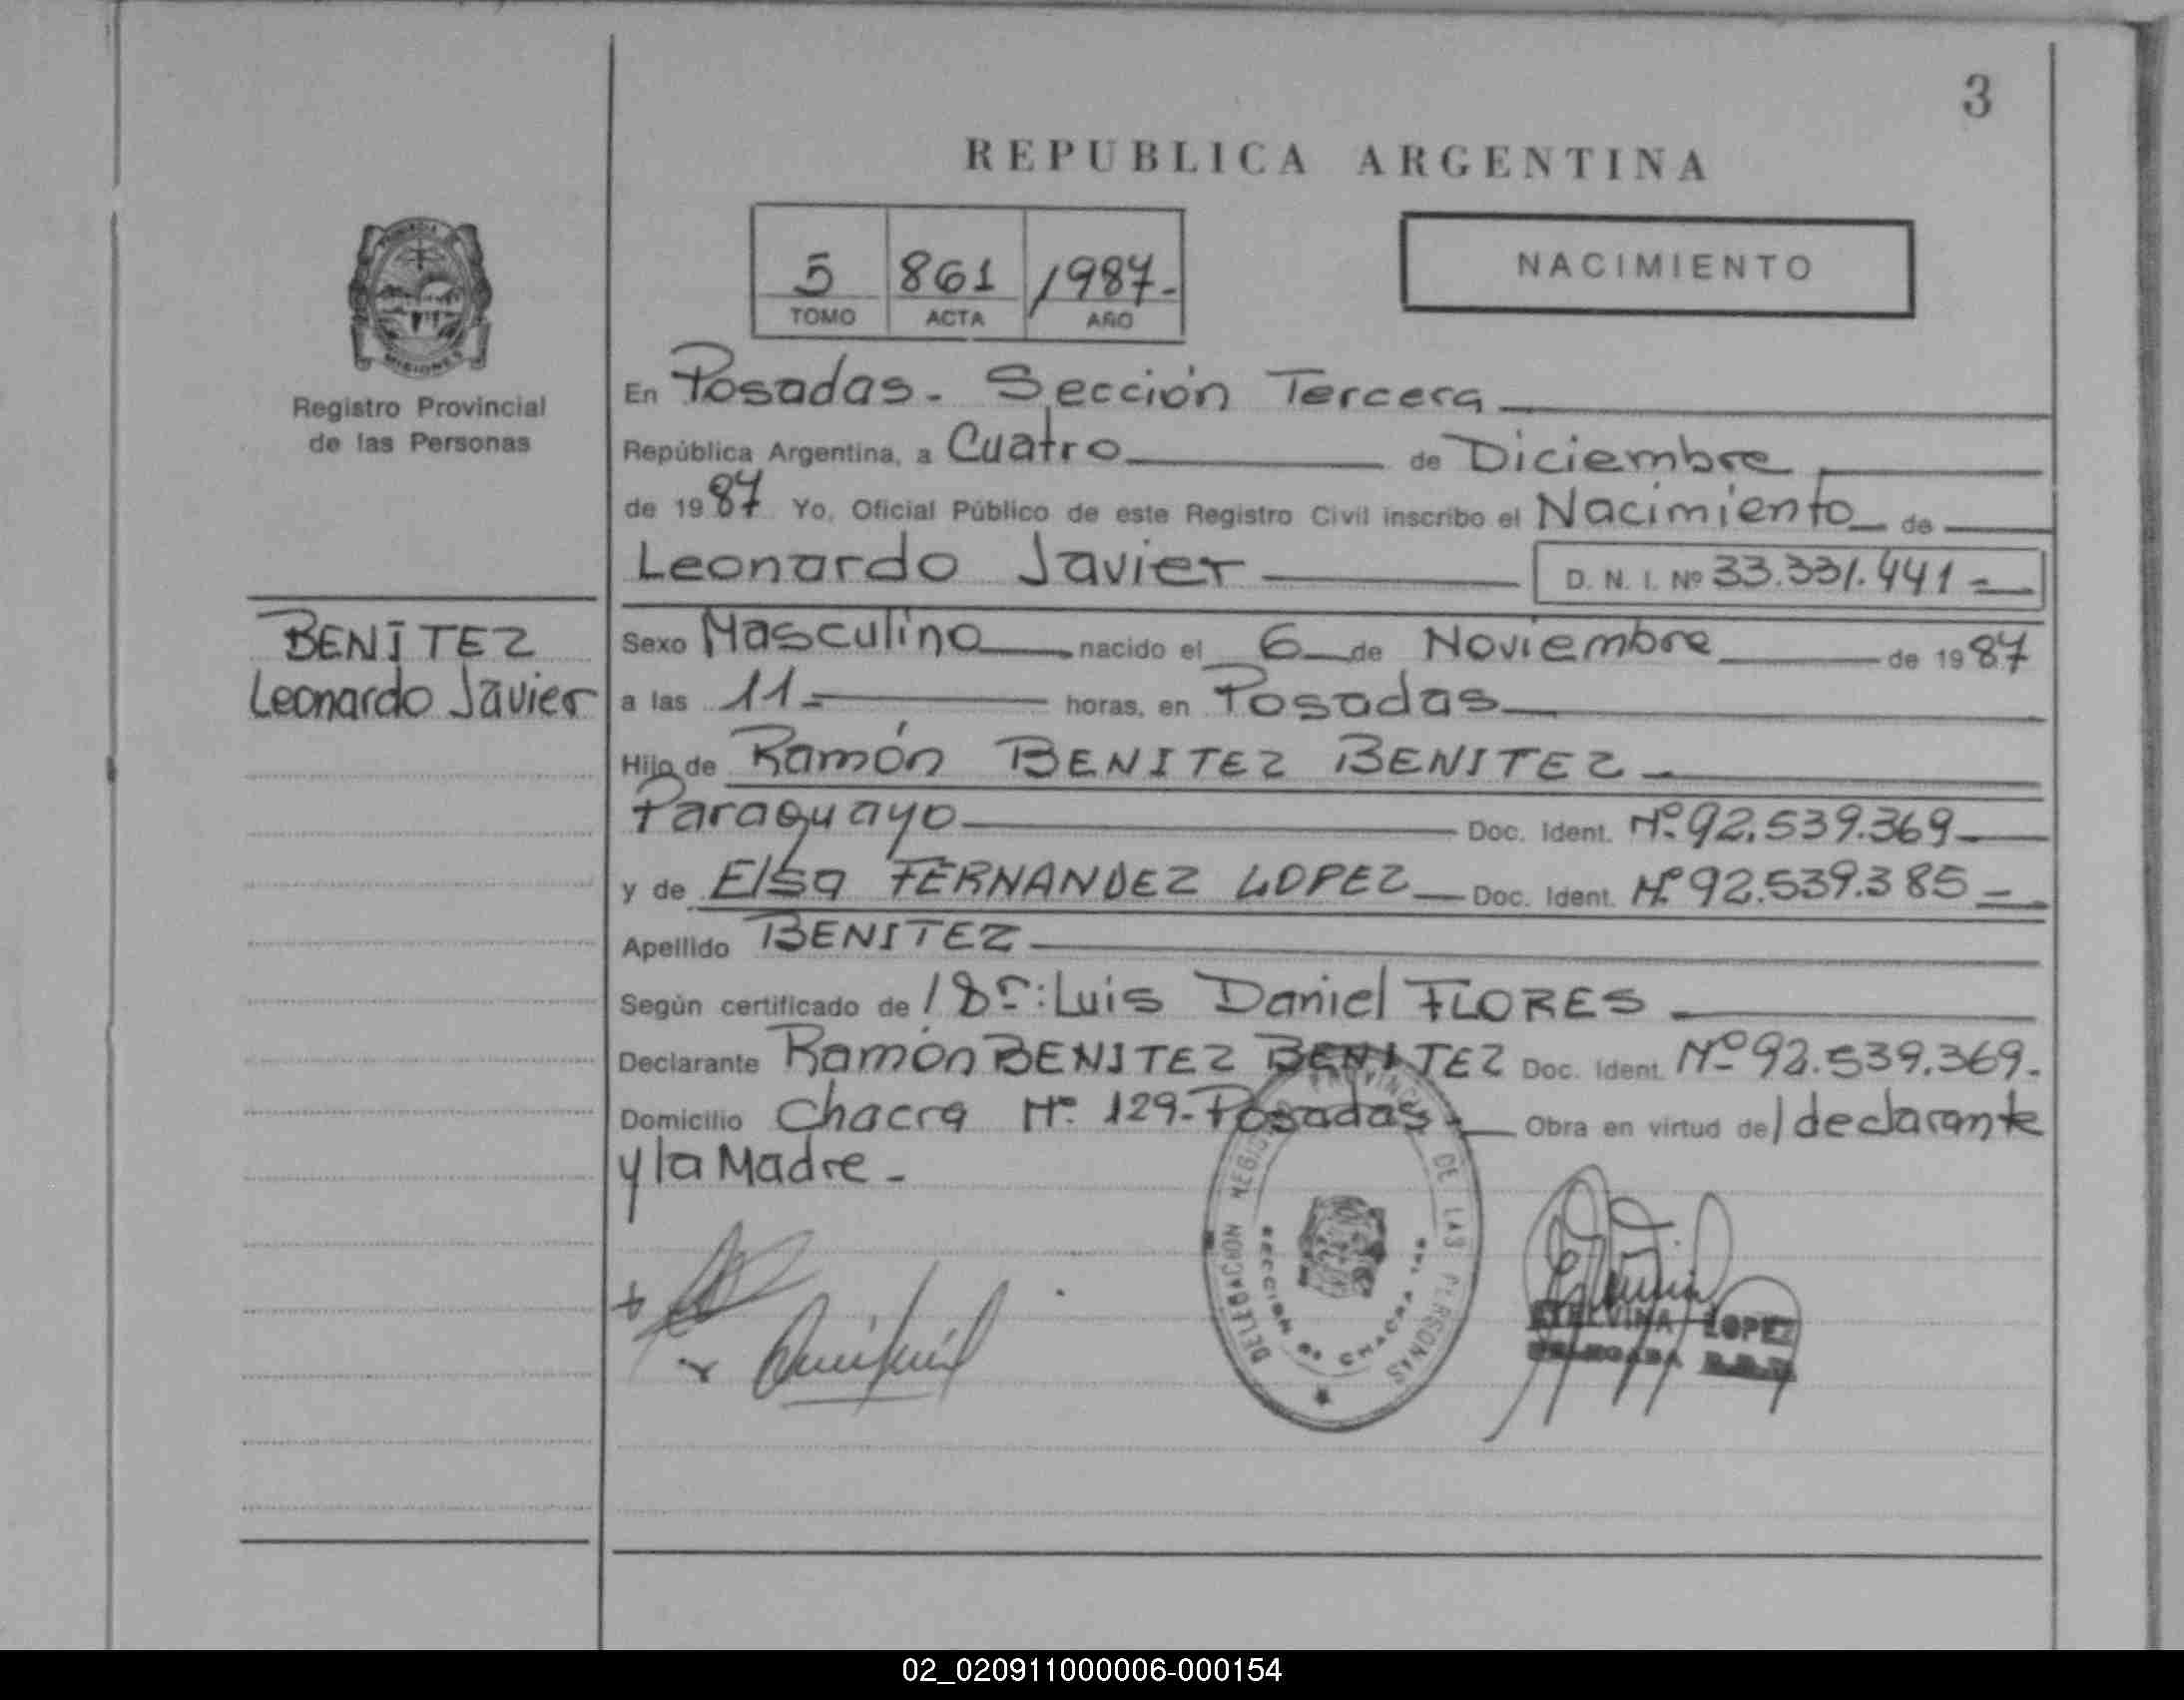 3
REPUBLICA ARGENTINA
5 861 1987-
TOMO ACTA AÑO
NACIMIENTO
MISIONES
Registro Provincial
de las Personas
BENITEZ
Leonardo Javier
En Posadas. Sección Tercera
República Argentina, a Cuatro de Diciembre
de 1987 Yo, Oficial Público de este Registro Civil inscribo el Nacimiento de
Leonardo Javier D. N. I. Nº 33.331.441=
Sexo Masculino nacido el 6 de Noviembre de 1987
a las 11= horas, en Posadas
Hijo de Ramón BENITEZ BENITEZ
Paraguayo Doc. Ident. Nº 92.539.369
y de Elsa FERNANDEZ LOPEZ Doc. Ident. Nº 92.539.385=
Apellido BENITEZ
Según certificado de / Dr: Luis Daniel FLORES
Declarante Ramón BENITEZ BENITEZ Doc. Ident. Nº 92.539.369.
Domicilio Chacra Nº 129-Posadas. Obra en virtud de/ declarante
y la Madre-
DELEGACION REGISTRO PROVINCIAL DE LAS PERSONAS
LOPEZ
DELEGADA
02_020911000006-000154